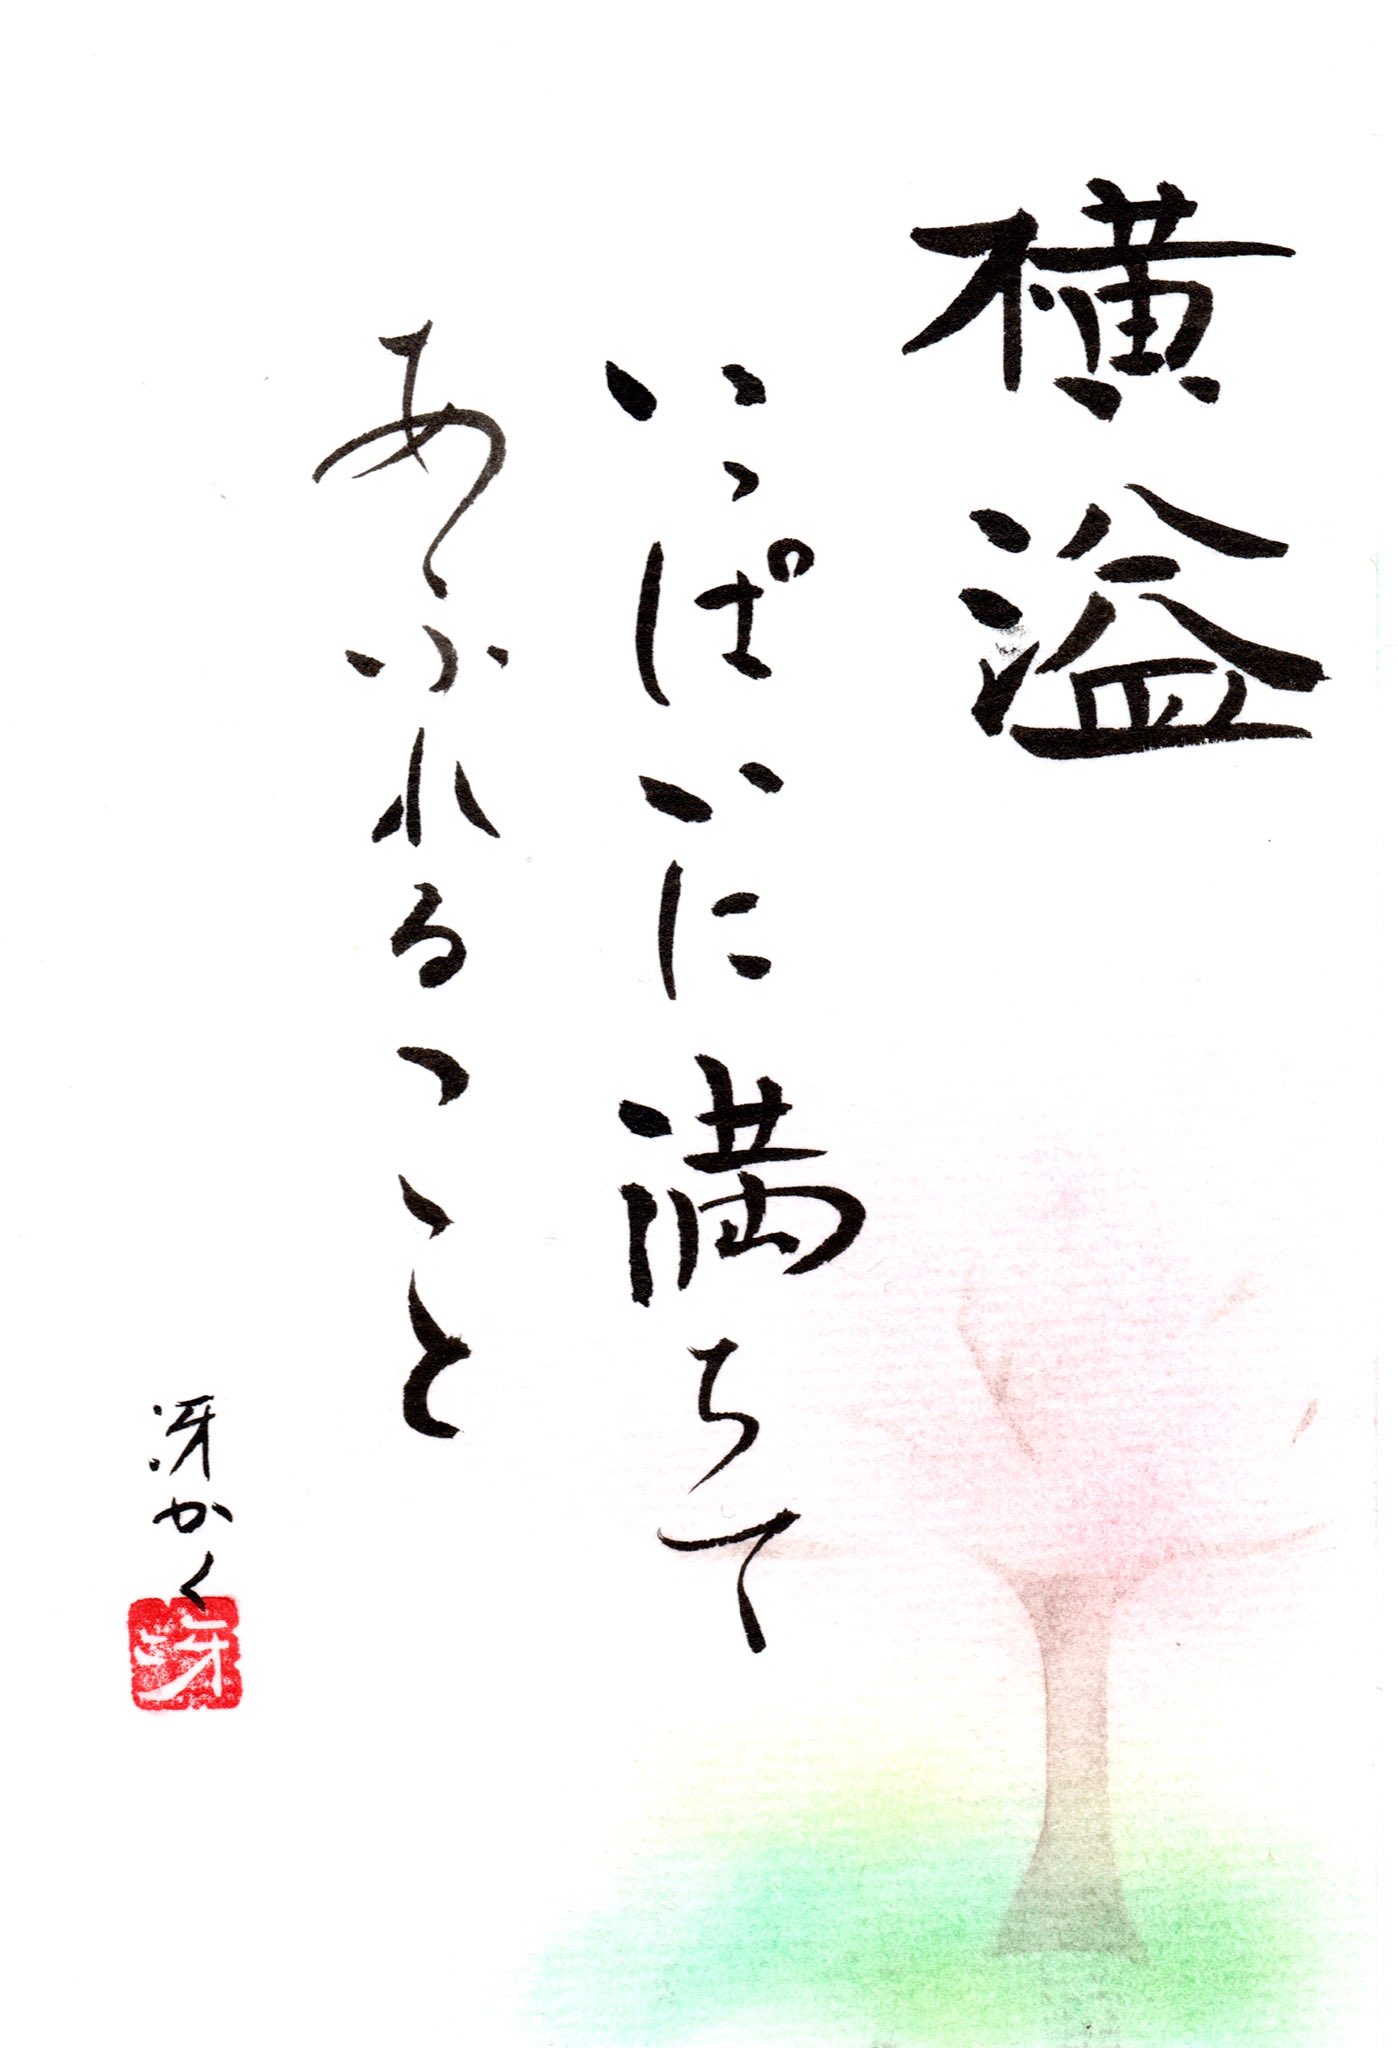 横溢
いっぱいに満ちて
あふれること
冴かく
冴